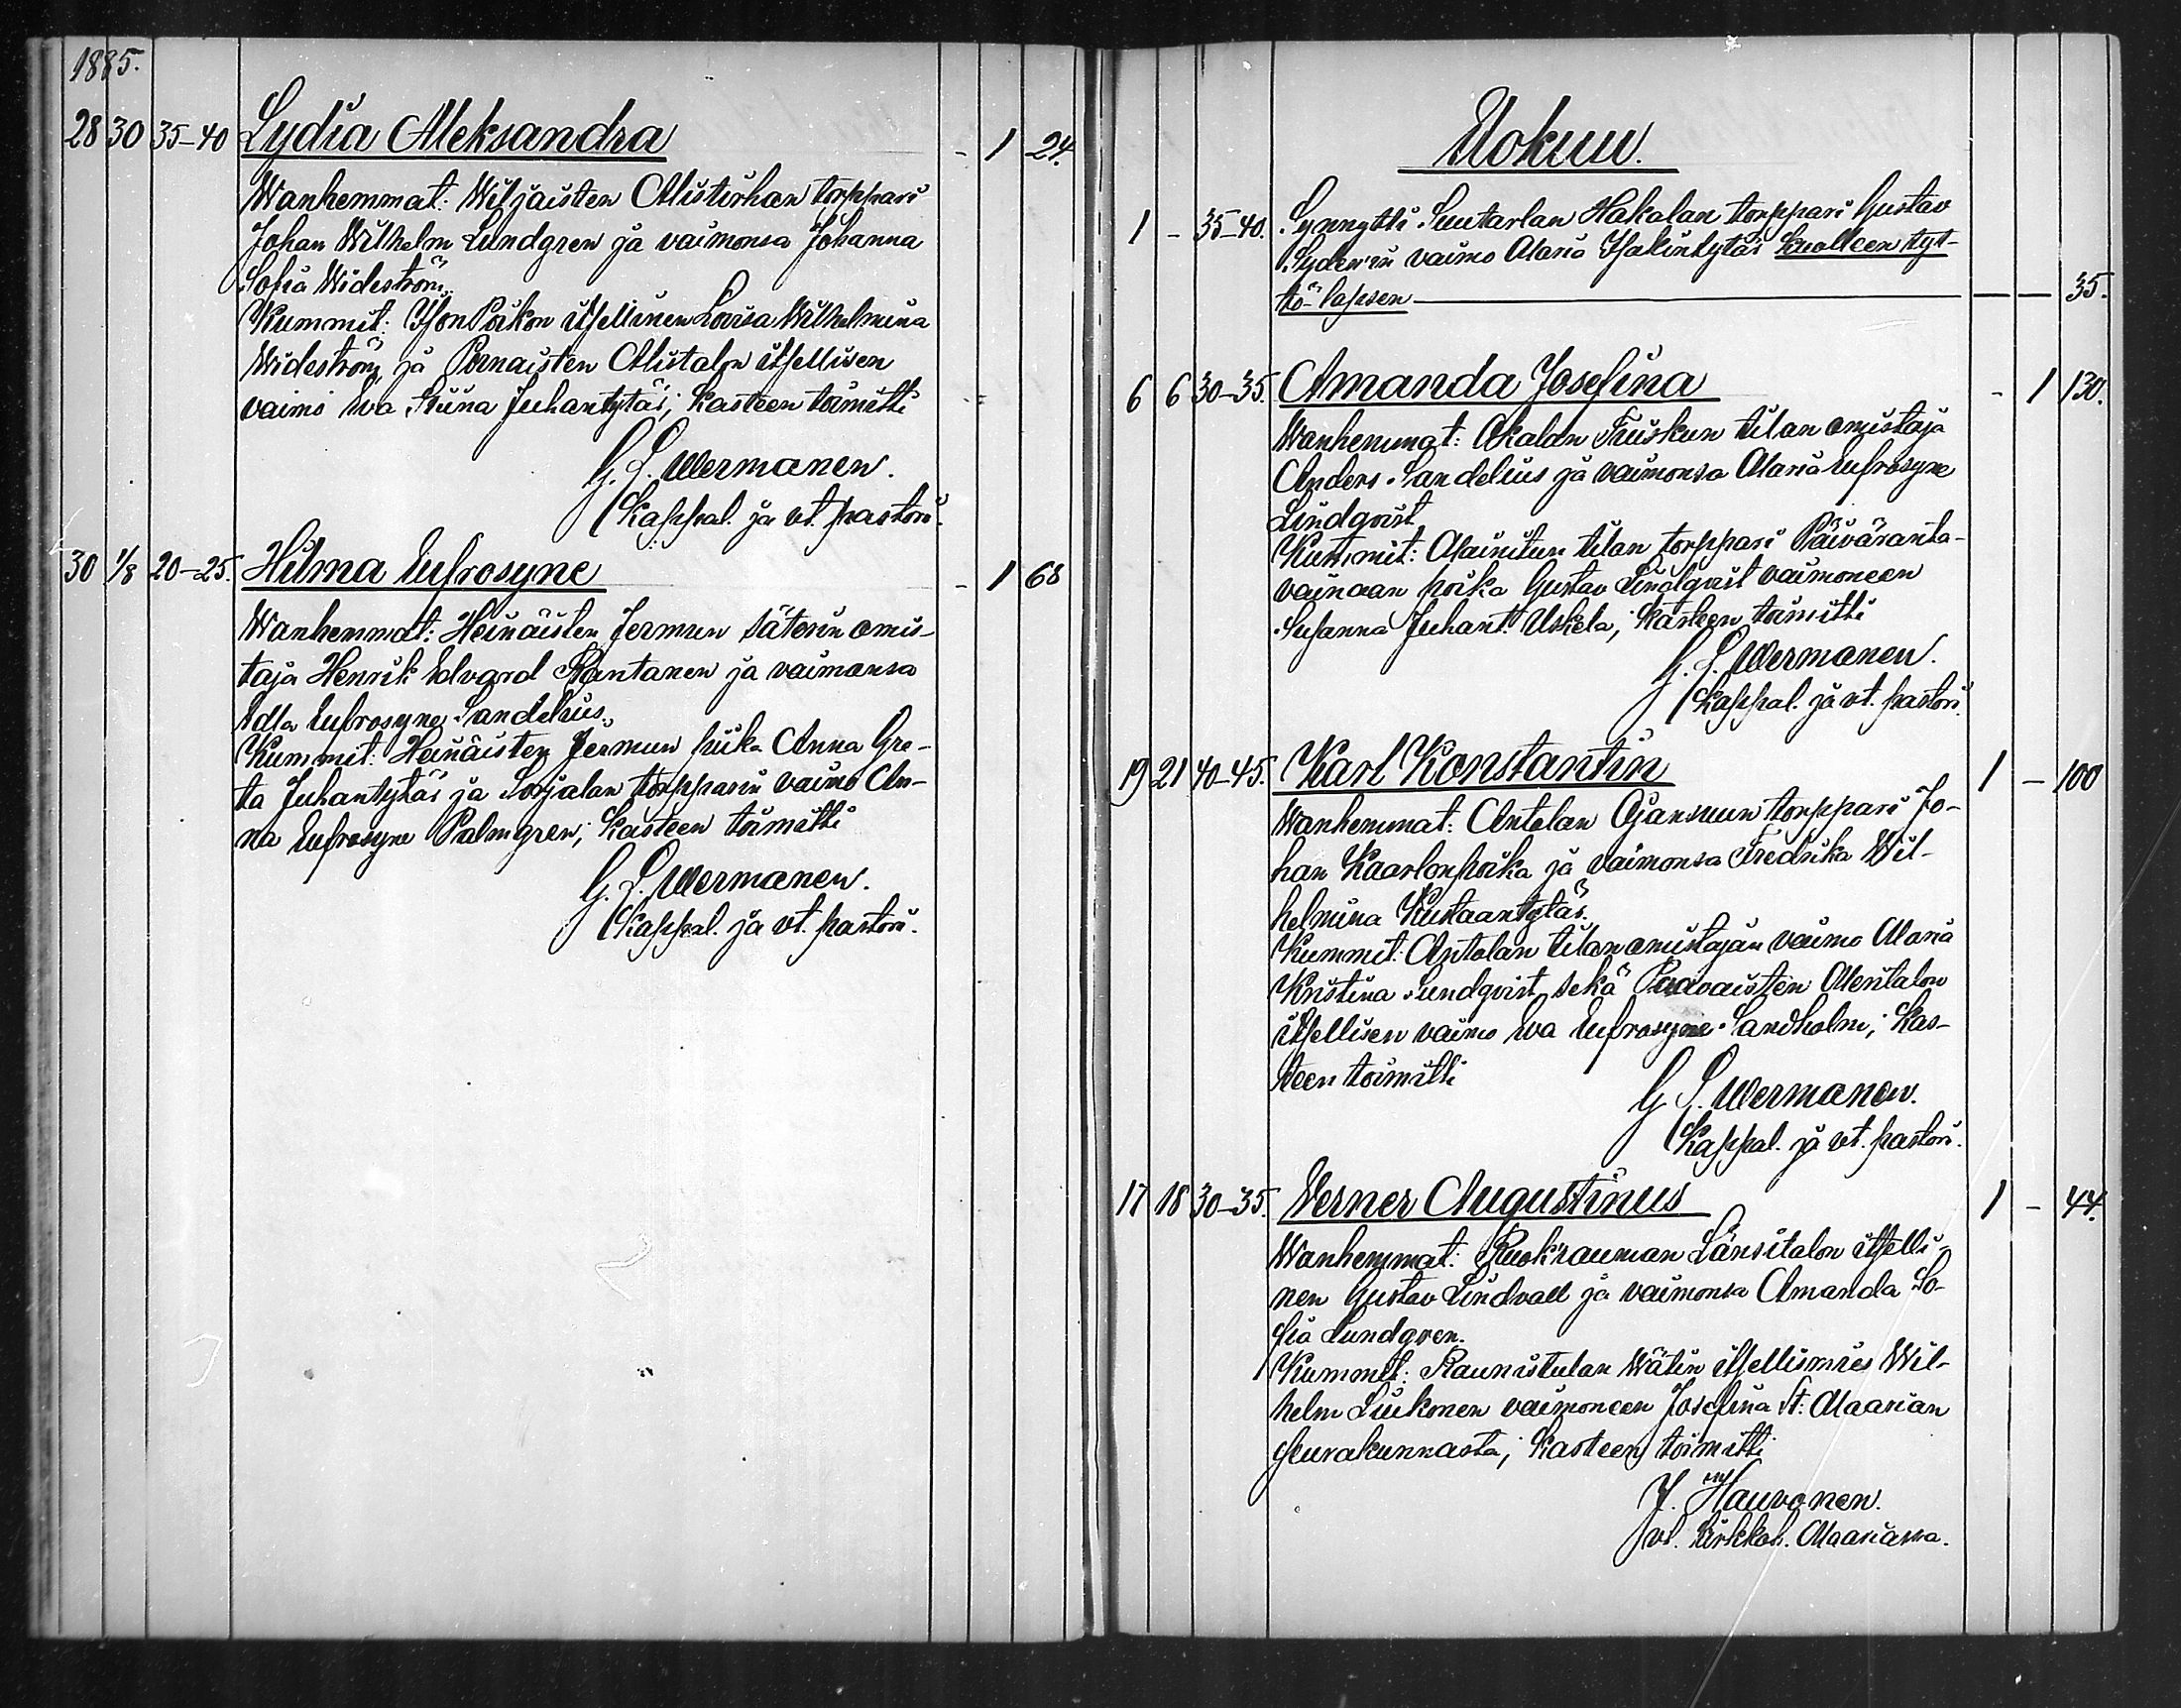 1885.
28 30 35-40 Lydia Aleksandra - 1 24.
Wanhemmat: Wiljaisten Alistirhan torppari
Johan Wilhelm Lundgren ja vaimonsa Johanna
Sofia Wideström.
Kummit: Ison Poikon itsellinen Lovisa Wilhelmina
Wideström ja Pornaisten Alistalon itsellisen
vaimo Eva Stiina Juhantytär; Kasteen toimitti
G. L. Wermanen.
Kappal. ja vt. pastori.
30 1/8 20-25. Hilma Eufrosyne - 1 68
Wanhemmat: Heinäisten Jermun säterin omis-
taja Henrik Edvard Rantanen ja vaimonsa
Edla Eufrosyne Sandelius.
Kummit: Heinäisten Jermun piika Anna Gre-
ta Juhantytär ja Sorjalan torpparin vaimo An-
na Eufrosyne Palmgren; Kasteen toimitti
G. L. Wermanen.
Kappal. ja vt. pastori.
Elokuu.
1 - 35-40. Synnytti Suutarlan Hakalan torppari Gustav
Syden'in vaimo Maria Isakintytär kuolleen tyt-
tö-lapsen — — 35.
6 6 30-35. Amanda Josefina - 1 130.
Wanhemmat: Akalan Friiskun tilan omistaja
Anders Sandelius ja vaimonsa Maria Eufrosyne
Lindqvist
Kummit: Mainitun tilan torppari Päiväranta-
vainaan poika Gustav Lindqvist vaimoneen
Susanna Juhant. Uskela; Kasteen toimitti
G. L. Wermanen.
Kappal. ja vt. pastori.
19 21 40-45. Karl Konstantin 1 - 100
Wanhemmat: Antolan Ojansuun torppari Jo-
han Kaarlonpoika ja vaimonsa Fredrika Wil-
helmina Kustaantytär.
Kummit: Antolan tilanomistajan vaimo Maria
Kristina Sundqvist sekä Paavaisten Meritalon
itsellisen vaimo Eva Eufrosyne Sandholm; Kas-
teen toimitti
G. L. Wermanen.
Kappal. ja vt. pastori.
17 18 30-35. Verner Augustinus 1 - 44.
Wanhemmat: Ruokrauman Länsitalon itselli-
nen Gustav Lindvall ja vaimonsa Amanda So-
fia Lundgren.
Kummit: Raunistulan Wätin itsellismies Wil-
helm Liukonen vaimoneen Josefina St: Maarian
seurakunnasta; Kasteen toimitti
J. Hauvonen.
vt. Kirkkoh. Maariassa.